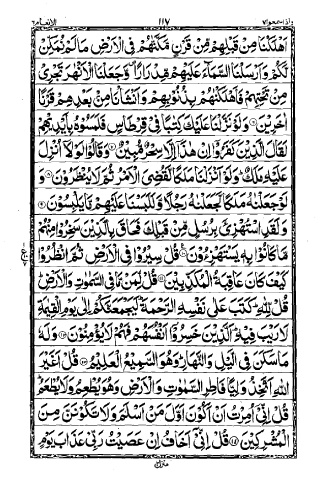 واذا سمعوا ٧ ١١٧ الانعام ٦
اَهْلَكْنَا مِنْ قَبْلِهِمْ مِّنْ قَرْنٍ مَّكَّنّٰهُمْ فِى الْاَرْضِ مَا لَمْ نُمَكِّنْ
لَّكُمْ وَاَرْسَلْنَا السَّمَآءَ عَلَيْهِمْ مِّدْرَارًا وَّجَعَلْنَا الْاَنْهٰرَ تَجْرِىْ
مِنْ تَحْتِهِمْ فَاَهْلَكْنٰهُمْ بِذُنُوْبِهِمْ وَاَنْشَاْنَا مِنْۢ بَعْدِهِمْ قَرْنًا
اٰخَرِيْنَ ۝ وَلَوْ نَزَّلْنَا عَلَيْكَ كِتٰبًا فِىْ قِرْطَاسٍ فَلَمَسُوْهُ بِاَيْدِيْهِمْ
لَقَالَ الَّذِيْنَ كَفَرُوْٓا اِنْ هٰذَآ اِلَّا سِحْرٌ مُّبِيْنٌ ۝ وَقَالُوْا لَوْلَآ اُنْزِلَ
عَلَيْهِ مَلَكٌ وَلَوْ اَنْزَلْنَا مَلَكًا لَّقُضِىَ الْاَمْرُ ثُمَّ لَا يُنْظَرُوْنَ ۝
وَلَوْ جَعَلْنٰهُ مَلَكًا لَّجَعَلْنٰهُ رَجُلًا وَّلَلَبَسْنَا عَلَيْهِمْ مَّا يَلْبِسُوْنَ ۝
وَلَقَدِ اسْتُهْزِئَ بِرُسُلٍ مِّنْ قَبْلِكَ فَحَاقَ بِالَّذِيْنَ سَخِرُوْا مِنْهُمْ
مَّا كَانُوْا بِهٖ يَسْتَهْزِءُوْنَ ۝ قُلْ سِيْرُوْا فِى الْاَرْضِ ثُمَّ انْظُرُوْا
كَيْفَ كَانَ عَاقِبَةُ الْمُكَذِّبِيْنَ ۝ قُلْ لِّمَنْ مَّا فِى السَّمٰوٰتِ وَالْاَرْضِ
قُلْ لِّلّٰهِ كَتَبَ عَلٰى نَفْسِهِ الرَّحْمَةَ لَيَجْمَعَنَّكُمْ اِلٰى يَوْمِ الْقِيٰمَةِ
لَا رَيْبَ فِيْهِ اَلَّذِيْنَ خَسِرُوْٓا اَنْفُسَهُمْ فَهُمْ لَا يُؤْمِنُوْنَ ۝ وَلَهٗ
مَا سَكَنَ فِى الَّيْلِ وَالنَّهَارِ وَهُوَ السَّمِيْعُ الْعَلِيْمُ ۝ قُلْ اَغَيْرَ
اللّٰهِ اَتَّخِذُ وَلِيًّا فَاطِرِ السَّمٰوٰتِ وَالْاَرْضِ وَهُوَ يُطْعِمُ وَلَا يُطْعَمُ
قُلْ اِنِّىْٓ اُمِرْتُ اَنْ اَكُوْنَ اَوَّلَ مَنْ اَسْلَمَ وَلَا تَكُوْنَنَّ مِنَ
الْمُشْرِكِيْنَ ۝ قُلْ اِنِّىْٓ اَخَافُ اِنْ عَصَيْتُ رَبِّىْ عَذَابَ يَوْمٍ
منزل ٢